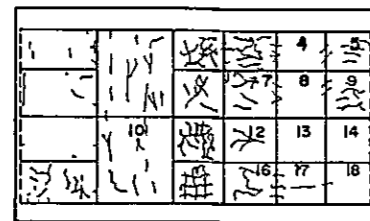 4 5
7 8 9
10 12 13 14
16 17 18